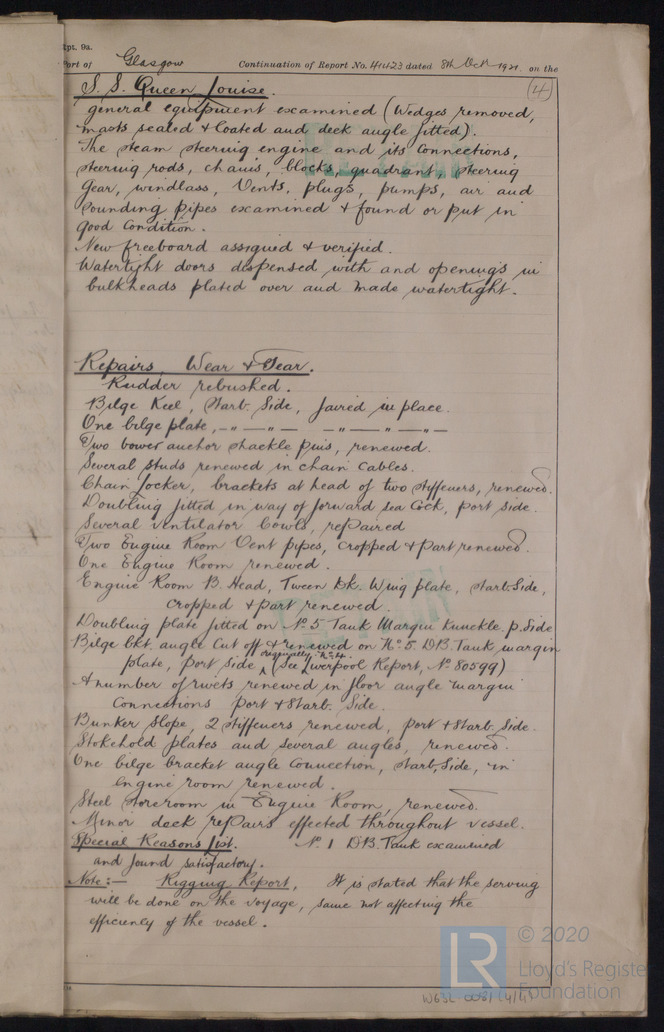 Rpt. 9a.
Port of Glasgow Continuation of Report No. 41423 dated 8th Oct 1921. on the
S.S. Queen Louise. (4)
general equipment examined (Wedges removed,
masts sealed & Coated and deck angle fitted).
The steam steering engine and its connections,
steering rods, chains, blocks, quadrant, steering
gear, windlass, Vents, plugs, pumps, air and
sounding pipes examined & found or put in
good condition.
New freeboard assigned & verified.
Watertight doors dispensed with and openings in
bulkheads plated over and made watertight.
Repairs, Wear & Tear.
Rudder rebushed.
Bilge Keel, Starb. Side, faired in place.
One bilge plate, -"-"- -"-"-"-
Two bower anchor shackle pins, renewed.
Several studs renewed in chain cables.
Chain Locker, brackets at head of two stiffeners, renewed.
Doubling fitted in way of forward sea Cock, port side.
Several ventilator Cowls, repaired
Two Engine Room Vent pipes, cropped & part renewed.
One Engine Room renewed.
Engine Room B. Head, Tween Dk. Wing plate, starb. Side,
cropped & part renewed.
Doubling plate fitted on No. 5 Tank Margin Knuckle p. Side
Bilge bkt. angle cut off & renewed on No. 5 DB. Tank margin
originally No. 4.
plate, port side (See Liverpool Report, No 80599)
A number of rivets renewed in floor angle margin
Connections port & Starb. Side.
Bunker Slope, 2 stiffeners renewed, port & Starb. Side.
Stokehold plates and several angles, renewed.
One bilge bracket angle connection, starb. Side, in
engine room renewed.
Steel storeroom in Engine Room, renewed.
Minor deck repairs effected throughout vessel.
Special Reasons List. No. 1 DB. Tank examined
and found satisfactory.
Note:— Rigging Report, It is stated that the serving
will be done on the voyage, same not affecting the
efficiency of the vessel.
© 2020
LR Lloyd's Register
Foundation